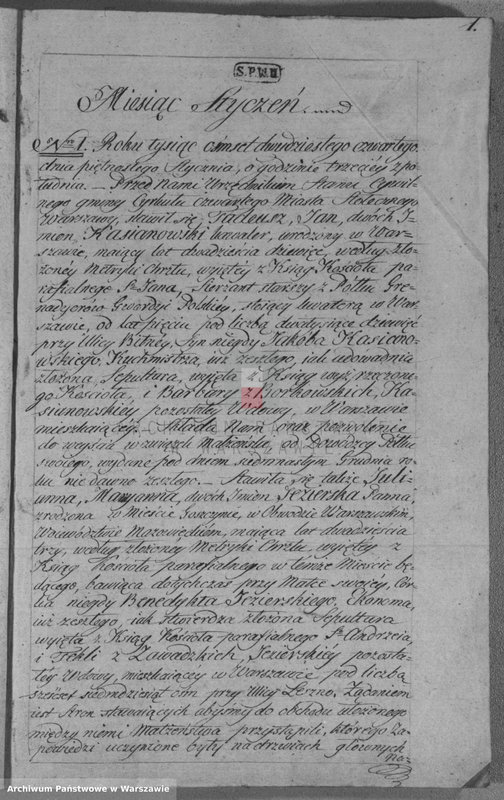 1.
S.P.W.II
Miesiąc Styczeń
Nro 1. Roku tysiąc ośmset dwudziestego czwartego
dnia piętnastego Stycznia, o godzinie trzeciéy z po=
łudnia. — Przed Nami Urzędnikiem Stanu Cywil=
nego gminy Cyrkułu Czwartego Miasta Stołecznego
Warszawy, stawił się Tadeusz, Jan, dwóch I=
mion, Kasianowski kawaler, urodzony w War=
szawie, maiący lat dwadzieścia dziewięć, według zło=
żoney Metryki Chrztu, wyiętey z Ksiąg Kościoła pa=
rafialnego Sgo Jana, Sierżant starszy z Pułku Gre=
nadyerów Gwardyi Polskiéy, stoiący kwaterą w War=
szawie, od lat pięciu pod liczbą dwa tysiące dziewięć
przy Ulicy Bitnéy, Syn niegdy Jakóba Kasiano=
wskiego, Kuchmistrza, iuż zeszłego, iak udowadnia
złożona Sepultura, wyięta z Ksiąg wyż rzeczone=
go Kościoła, i Barbary z Borkowskich, Ka=
sianowskiey pozostałéy Wdowy, w Warszawie
mieszkaiącéy. Składa Nam oraz pozwolenie
do weyścia w związek małżeński, od Dowódzcy Pułku
swoiego, wydane pod dniem siedmnastym Grudnia ro=
ku nie dawno zeszłego. — Stawiła się także Juli=
anna, Maryanna, dwóch Imion, Jezierska Panna,
zrodzona w Mieście Goszczynie, w Obwodzie Warszawskim,
Województwie Mazowieckiem, maiąca lat dwadzieścia
trzy, według złożoney Metryki Chrztu, wyiętéy z
Ksiąg Kościoła parafialnego w temże Mieście bę=
dącego, bawiąca dotychczas przy Matce swoiéy, Cór=
ka niegdy Benedykta Jezierskiego, Ekonoma,
iuż zeszłego, iak stwierdza złożona Sepultura
wyięta z Ksiąg Kościoła parafialnego Sgo Andrzeia,
i Tekli z Zawadzkich, Jezierskiéy pozosta=
łéy Wdowy, mieszkaiącey w Warszawie pod liczbą
sześćset siedmdziesiąt ośm przy Ulicy Leszno. Żądaniem
iest Stron stawaiących abyśmy do obchodu ułożonego
między niemi Małżeństwa przystąpili, którego Za=
powiedzi uczynione były na drzwiach głównych
na=
Archiwum Państwowe w Warszawie